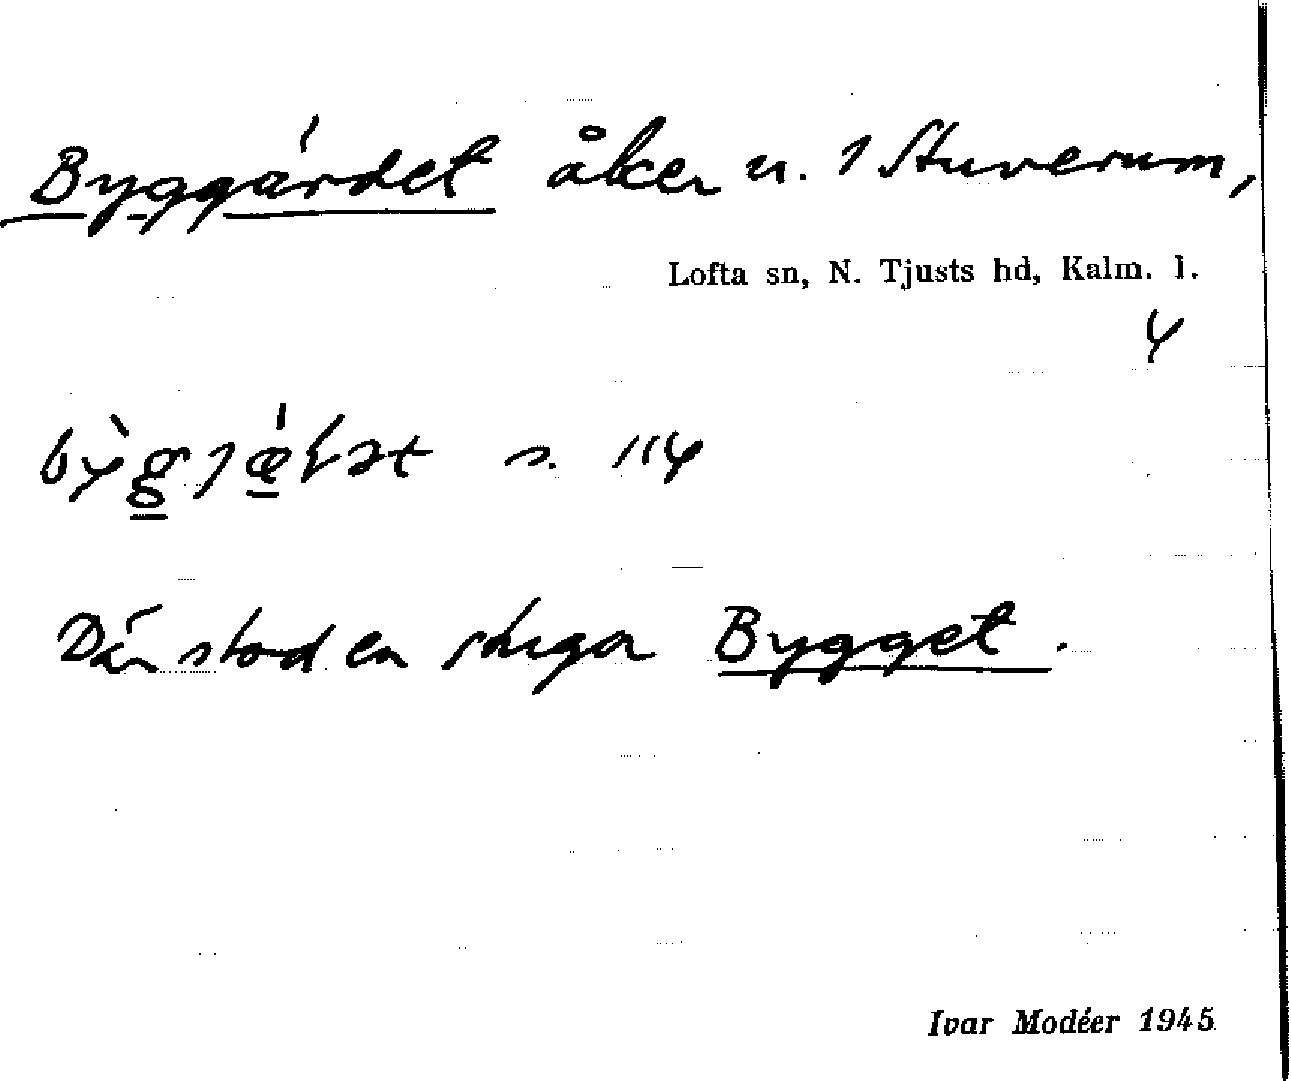 Byggärdet åker u. 1 Stuverum,
Lofta sn, N. Tjusts hd, Kalm. l.
4
s. 114
Där stod en stuga Bygget.
Ivar Modéer 1945